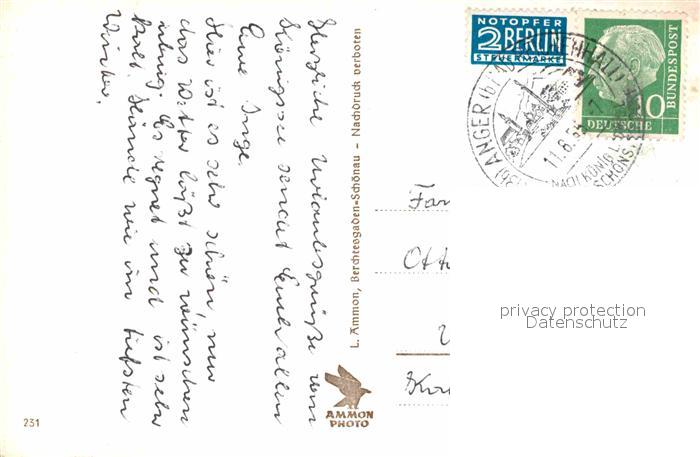 Herzliche Urlaubsgrüße vom
Königssee sendet Euch allen
Eure Inge.
Hier ist es sehr schön, nur
das Wetter läßt zu wünschen
übrig. Es regnet und ist sehr
kalt. Hände wie im tiefsten
Winter.
L. Ammon, Berchtesgaden-Schönau – Nachdruck verboten
AMMON
PHOTO
231
NOTOPFER
2 BERLIN
STEUERMARKE
10
DEUTSCHE
BUNDESPOST
ANGER (b
11.8.5
NACH KÖNIG
SCHÖNS
Fam
Otto
privacy protection
Datenschutz